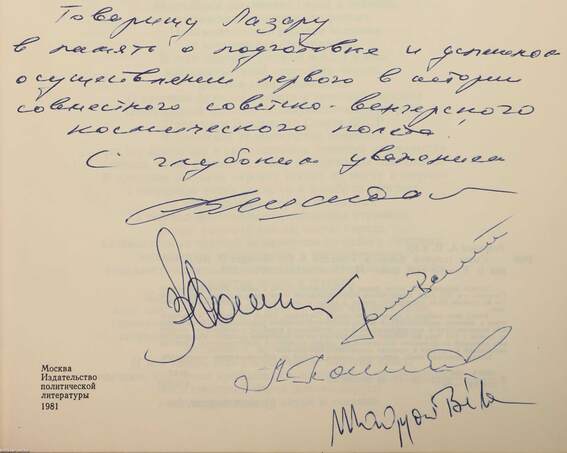 Товарищу Лазару
в память о подготовке и успешном
осуществлении первого в истории
совместного советско-венгерского
космического полета!
С глубоким уважением
Magyari Béla
Москва
Издательство
политической
литературы
1981